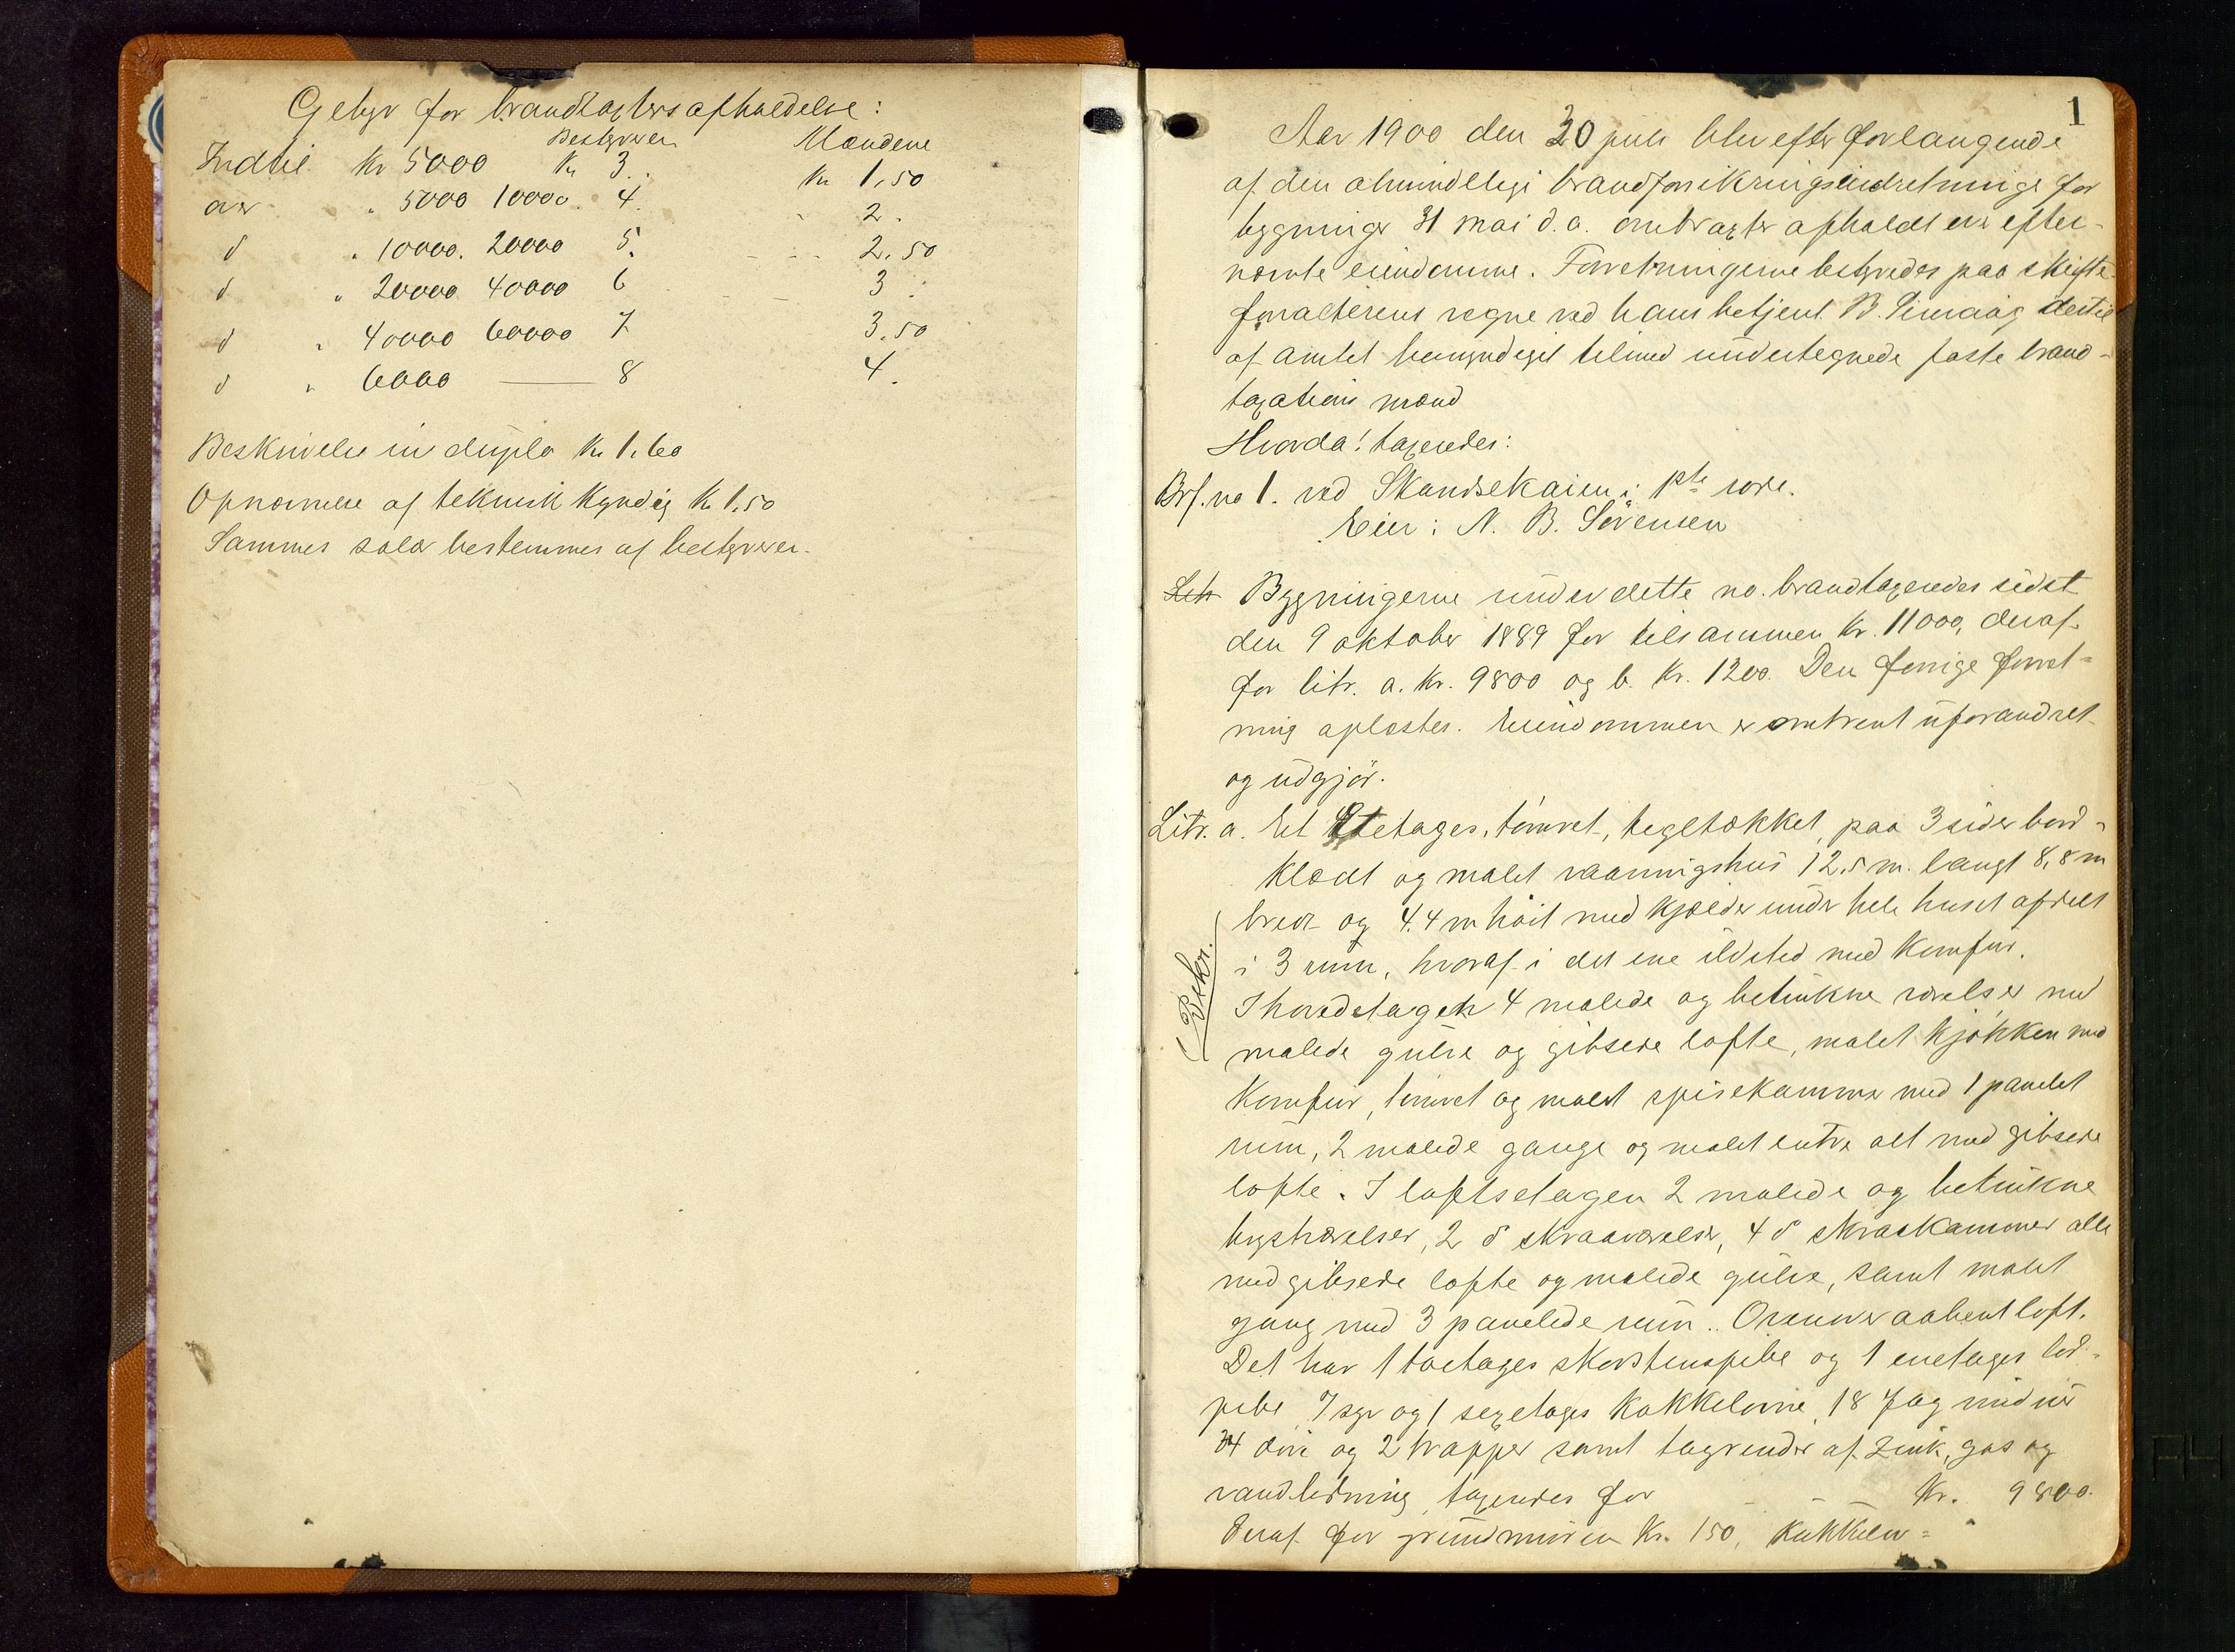 Gebyr for brandtaxters afholdelse:
Bestyreren Mændene
Indtil Kr 5000 Kr 3. Kr 1,50
over " 5000 10000 4. " 2.
d " 10000. 20000 5. 2.50
d " 20000 40000 6 3.
d " 40000 60000 7 3.50
d " 6000 — 8 4.
Beskrivelse in duplo Kr 1.60
Opnævnelse af teknisk kyndig Kr 1.50
Sammes salær bestemmes af bestyreren.
1
Aar 1900 den 30 juli blev efter forlangende
af den almindelige brandforsikringsindretninge for
bygninger 31 mai d.a. ombragter afholdt over efter-
nævnte eiendomme. Forretningerne bestyredes paa skifte
forvalterens vegne ved hans betjent B. dertil
af amtet bemyndiget tilmed undertegnede faste brand-
taxations mænd
Hvorda! taxeredes:
Brf. no 1. ved Skandsekaien i 1ste rode.
Eier: N. B. Sørensen
Litr Bygningerne under dette no. brandtaxeredes sidst
den 9 oktober 1889 for tilsammen Kr. 11000, deraf
for litr. a. Kr. 9800 og b. Kr. 1200. Den forrige forret-
ning oplæstes. Eiendommen er omtrent uforandret
og udgjør.
Litr. a. Et etages, tømret, tegltækket, paa 3 sider bord-
klædt og malet vaaningshus 12,5 m. langt 8,8 m
bredt og 4.4 m høit med kjælder under hele huset afdelt
i 3 rum, hvoraf i det ene ildsted med komfur.
Beskr.
I hovedetagen 4 malede og betrukne værelser med
malede gulve og gibsede lofte, malet kjøkken med
komfur, tømret og malet spisekammer med 1 panelet
rum, 2 malede gange og malet entre alt med gibsede
lofte. I loftsetagen 2 malede og betrukne
kvistværelser, 2 d skraaværelser, 4 d skraakammer alle
med gibsede lofte og malede gulve, samt malet
gang med 3 panelede rum. Ovenover aabent loft.
Det har 1 toetages skorstenspibe og 1 enetages lod-
pibe 7 og 1 sexetages kakkelovne, 18 fag vinduer
24 døre og 2 trapper samt tagrender af zink, gas og
vandledning, taxeredes for Kr. 9800.
Deraf for grundmuren Kr. 150, Kakkelov=